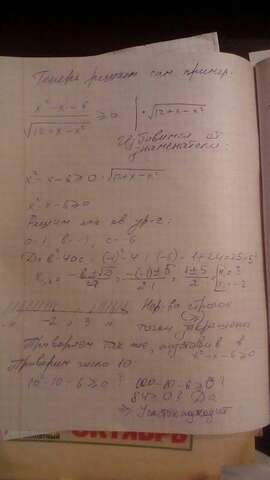 Теперь решаем сам пример.
x² - x - 6 / √12+x-x² ≥ 0 | · √12+x-x²
Избавимся от
знаменателя:
x² - x - 6 ≥ 0 · √12+x-x²
x² - x - 6 ≥ 0
Решим это кв ур-е:
a=1, b=-1, c=-6
D = b² - 4ac = (-1)² - 4·1·(-6) = 1+24 = 25 = 5²
x₁,₂ = -b±√D / 2a = -(-1)±5 / 2·1 = 1±5 / 2 = [x₁=3 x₂=-2
-2 3 Нер-во строгое
(≥)
точки закрашены
Проверяем так же, подставив в
x² - x - 6 ≥ 0
Проверим число 10:
10² - 10 - 6 ≥ 0? 100-10-6 ≥ 0?
84 ≥ 0? Да
⇒ Участок подходит
ОКТЯБРЬ